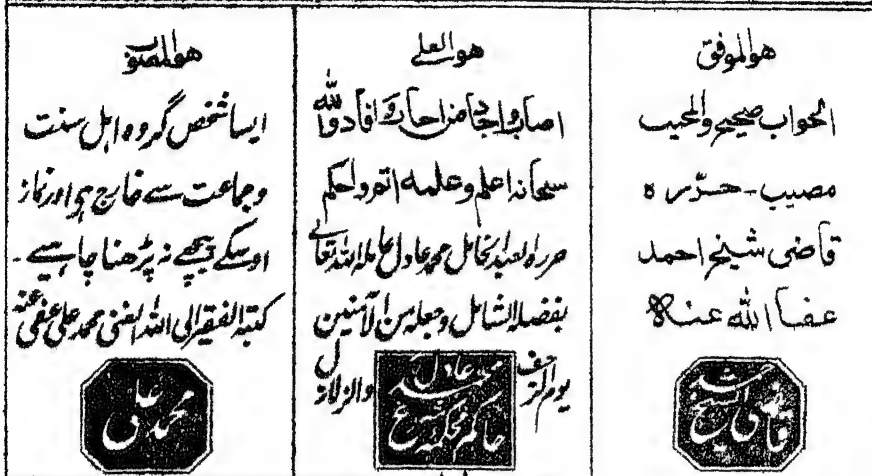 هو الموفق
الجواب صحيح والمجيب
مصيب - حرّره
قاضی شیخ احمد
عفا الله عنه
هو العلی
اصاب واجاد من اجاب وافاد والله
سبحانه اعلم وعلمه اتم واحکم
حرره العبد الخامل محمد عادل عامله الله تعالی
بفضله الشامل وجعله من الآمنین
یوم الزحف والزلازل
محمد عادل
حاکم محکمه شرع
هو المصوب
ایسا شخص گروه اهل سنت
وجماعت سے خارج ہو اور نماز
اوسکے پیچھے نہ پڑھنا چاہیے -
کتبه الفقیر الی الله الغنی محمد علی عفی عنه
محمد علی